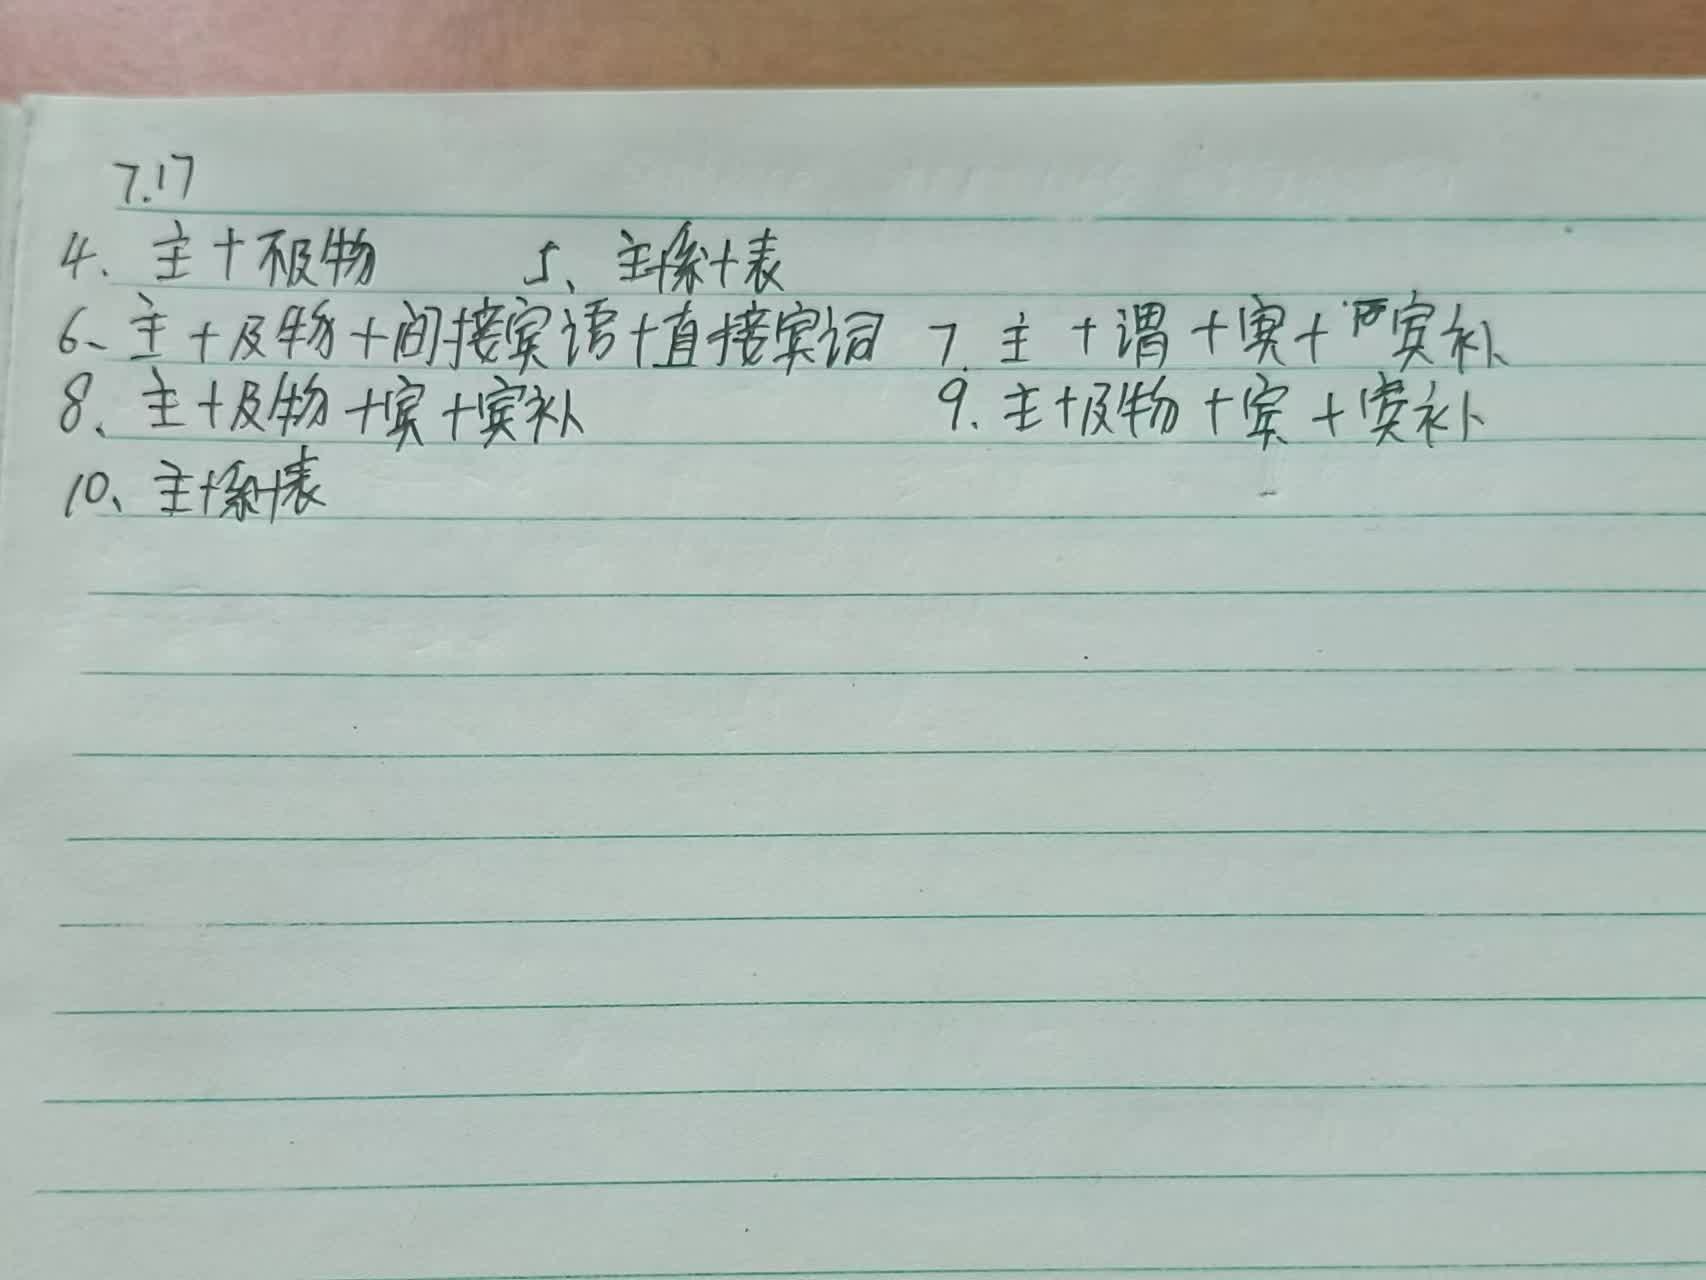 7.17
4、主+不及物 5、主+系+表
6、主+及物+间接宾语+直接宾词 7. 主+谓+宾+宾补
8、主+及物+宾+宾补 9. 主+及物+宾+宾补
10、主+系+表